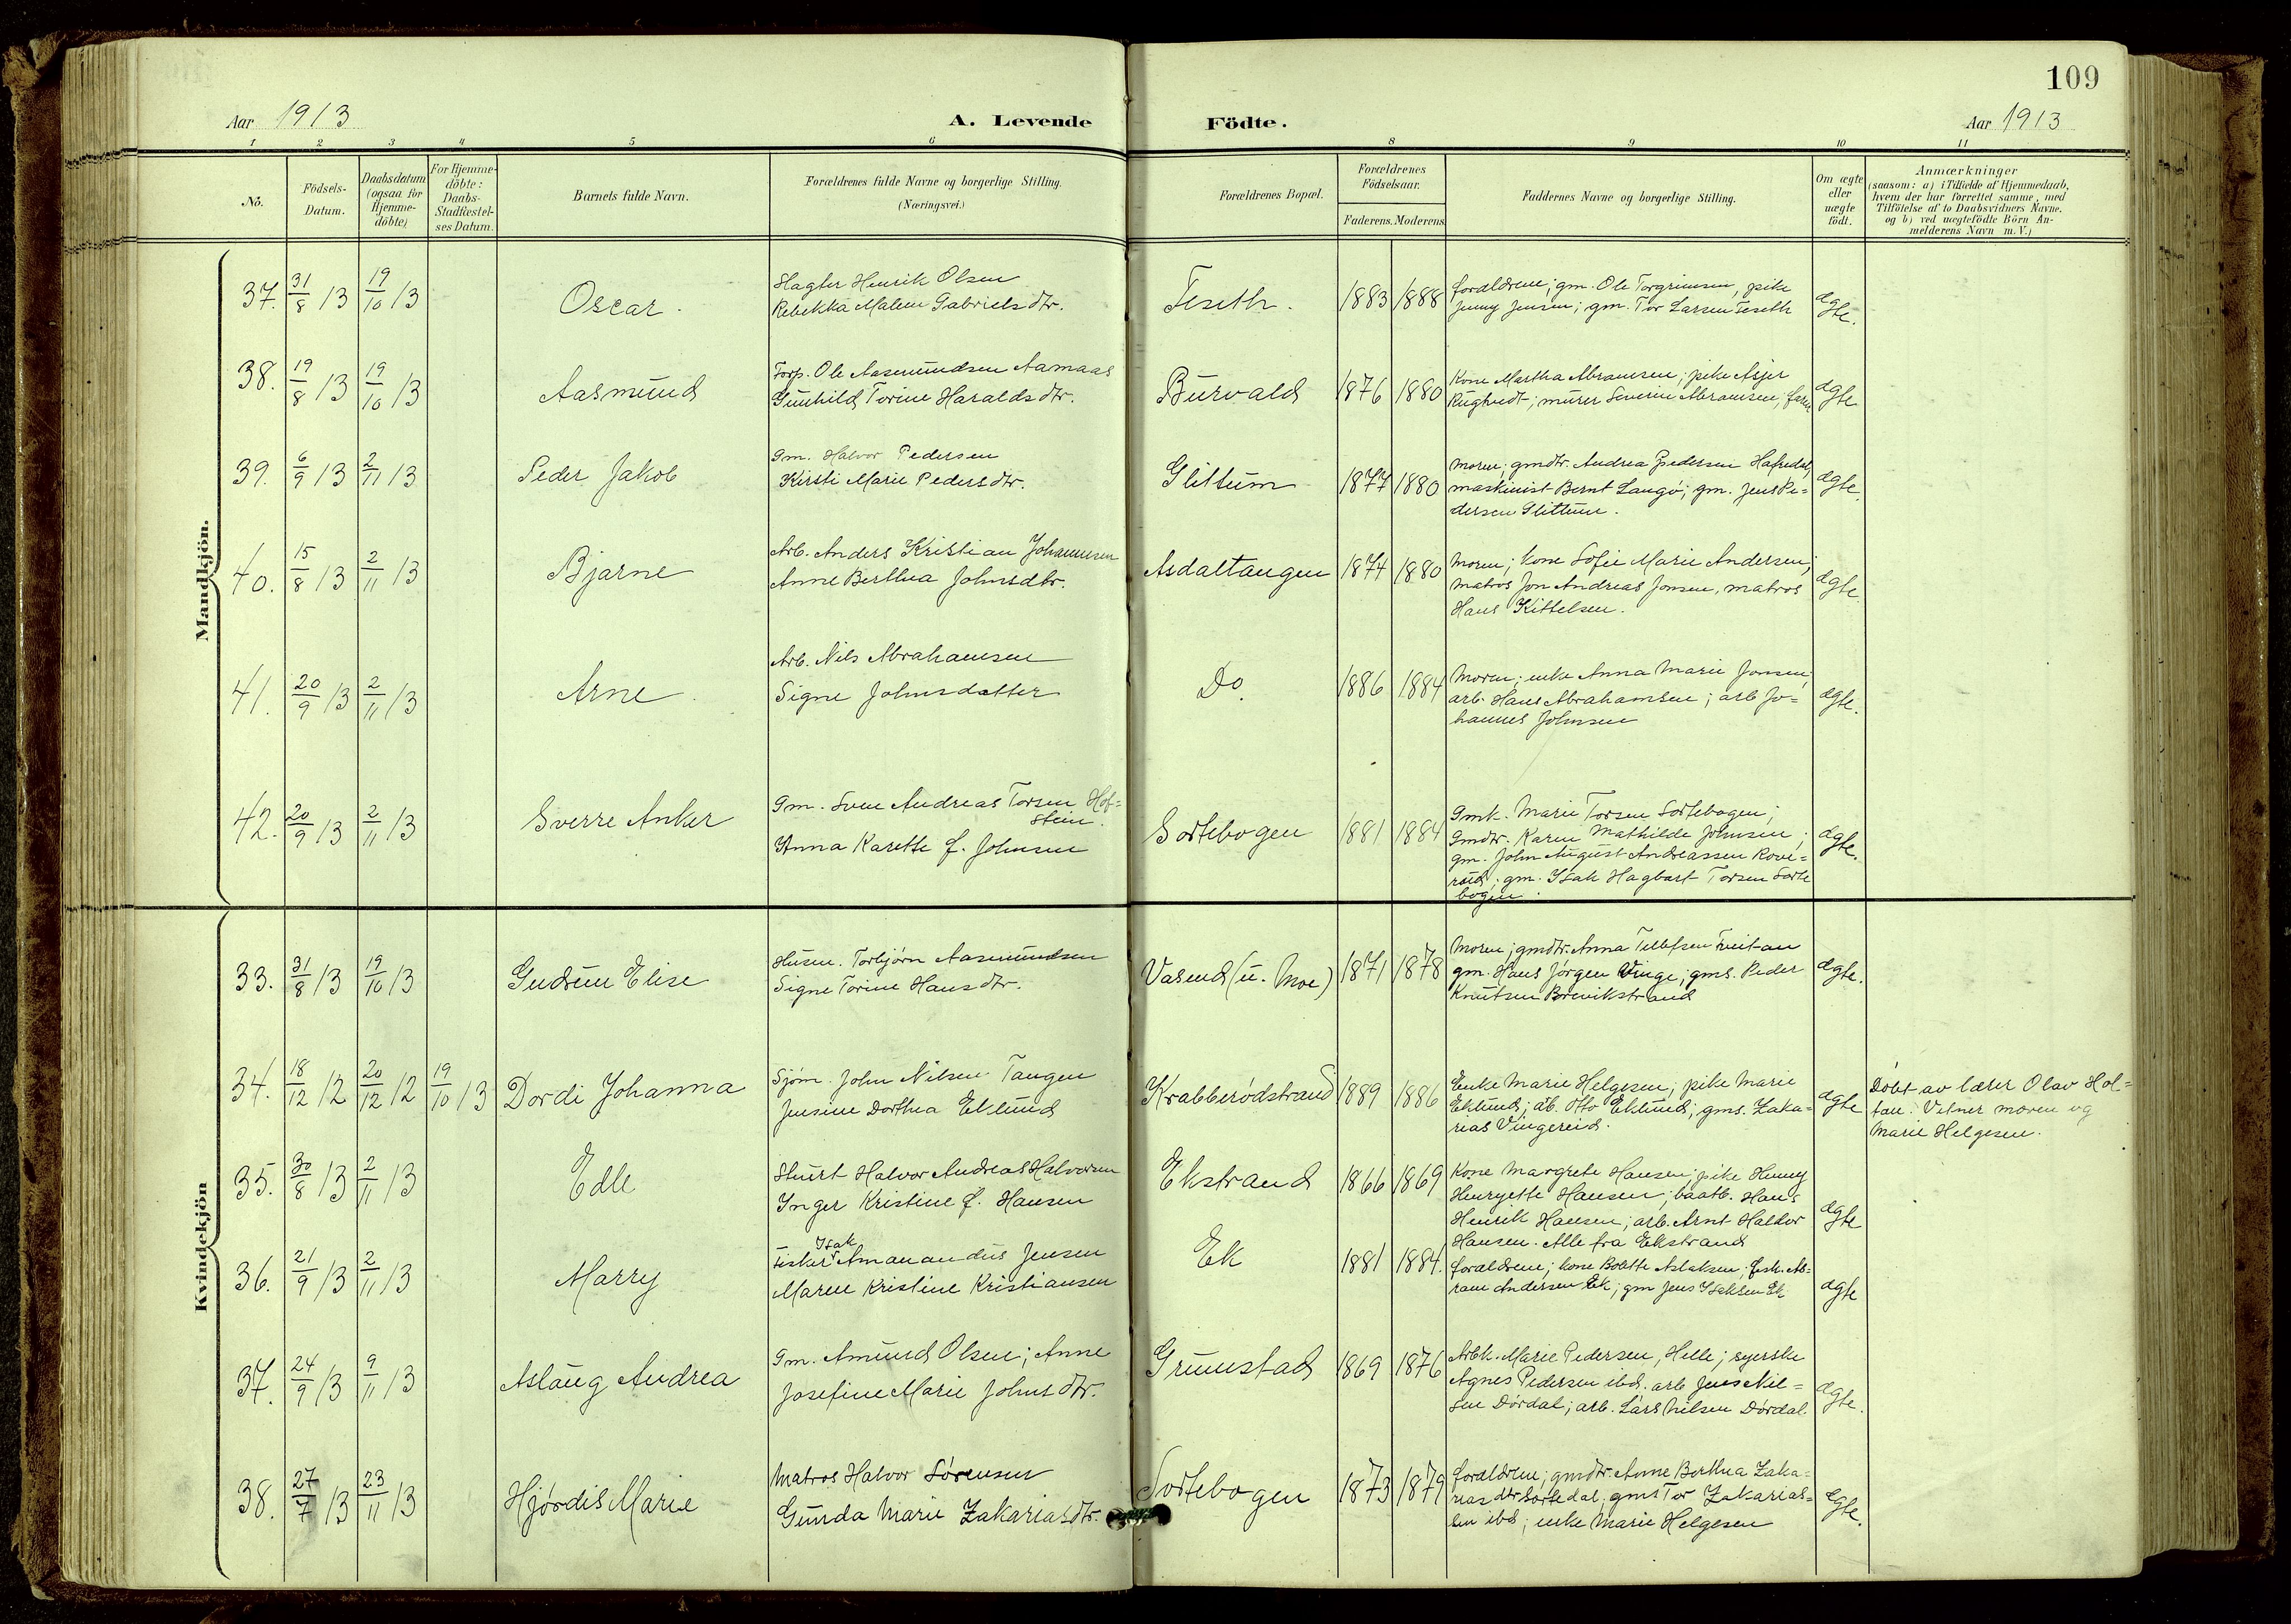 109
Aar 1913
A. Levende
Födte.
Aar 1913
1 2 3 4 5 6 8 9 10 11
No.
Födsels-
Datum.
Daabsdatum
(ogsaa for
Hjemme-
döbte)
For Hjemme-
döbte:
Daabs-
Stadfæstel-
ses Datum.
Barnets fulde Navn.
Forældrenes fulde Navne og borgerlige Stilling.
(Næringsvei.)
Forældrenes Bopæl.
Forældrenes
Födselsaar.
Faderens. Moderens
Faddernes Navne og borgerlige Stilling.
Om ægte
eller
uægte
födt.
Anmærkninger
(saasom: a) i Tilfælde af Hjemmedaab,
hvem der har forrettet samme, med
Tilföielse af to Daabsvidners Navne.
og b) ved uægtefödte Börn An-
melderens Navn m. V.)
Mandkjön.
37. 31/8 13 19/10 13
Oscar.
Slagter Henrik Olsen
Rebekka Malene Gabrielsdtr.
Teseth.
1883 1888
forældrene; gm. Ole Torgrimsen, pike
Jenny Jensen; gm. Tor Larsen Teseth
ægte.
38. 19/8 13 19/10 13
Aasmund
Torp. Ole Aasmundsen Aamaas
Gunhild Torine Haraldsdtr.
Burvald
1876 1880
Kone Martha Abramsen; pike Asjer
Rugtvedt; murer Severin Abramsen, faren
ægte
39. 6/9 13 2/11 13
Peder Jakob
Gm. Halvor Pedersen
Kirsti Marie Pedersdtr.
Glittum
1877 1880
Moren; gmdtr. Andrea Pedersen Hafredal,
maskinist Bernt Langø; gm. Jens Pe=
dersen Glittum.
ægte.
40. 15/8 13 2/11 13
Bjarne
Arb. Anders Kristian Johannesen
Anne Berthea Johnsdtr.
Asdaltangen
1874 1880
Moren; kone Sofie Marie Andersen;
matros Jon Andreas Jonsen, matros
Hans Kittelsen.
ægte.
41. 20/9 13 2/11 13
Arne.
Arb. Nils Abrahamsen
Signe Johnsdatter
Do.
1886 1884
Moren; enke Anna Marie Jonsen;
arb. Hans Abrahamsen; arb Jo=
hannes Johnsen
ægte.
42. 20/9 13 2/11 13
Sverre Anker
Gm. Sven Andreas Torsen Hof=
stein.
Anna Karette f. Johnsen
Sortebogen
1881 1884
Gmk. Marie Torsen Sortebogen;
Gmdtr. Karen Mathilde Johnsen;
gm. John August Andreassen Rove=
rud; gm. Isak Hagbart Torsen Sorte
bogen.
ægte.
Kvindekjön
33. 31/8 13 19/10 13
Gudrun Elise
Husm. Torbjørn Aasmundsen
Signe Torine Hansdtr.
Vasend (u. Moe)
1871 1878
Moren; gmdtr. Anna Tellefsen
gm. Hans Jørgen Vinge; gms. Peder
Knutsen Brevikstrand
ægte.
34. 18/12 12 20/12 12 19/10 13
Dordi Johanna
Sjøm. John Nilsen Tangen
Jensine Dorthea Eklund
Krabberødstrand
1889 1886
Enke Marie Helgesen; pike Marie
Eklund; arb. Otto Eklund; gms. Zaka=
rias Vingereid.
ægte
Døbt av lærer Olav Hol=
tan. Vitner moren og
Marie Helgesen.
35. 30/8 13 2/11 13
Edle
Stuert Halvor Andreas Halvorsen
Inger Kristine f. Hansen
Ekstrand
1866 1869
Kone Margrete Hansen; pike Henny
Henryette Hansen; baatb. Hans
Henrik Hansen; arb. Arnt Haldor
Hansen. Alle fra Ekstrand
ægte
36. 21/9 13 2/11 13
Marry
Isak
Fisker Amanandus Jensen
Maren Kristine Kristiansen
Ek
1881 1884.
forældrene; kone Bolette Aslaksen; fisk. Ab=
ram Andersen Ek; gm Jens Isaksen Ek
ægte
37. 24/9 13 9/11 13
Aslaug Andrea
Gm. Amund Olsen; Anne
Josefine Marie Johnsdtr.
Grumstad
1869 1876
Arbk. Marie Pedersen, Helle; syerske
Agnes Pedersen ibd. arb Jens Nil=
sen Dørdal; arb. Lars Nilsen Dørdal.
ægte.
38. 27/7 13 23/11 13
Hjørdis Marie
Matros Halvor Sørensen
Gunda Marie Zakariasdtr.
Sortebogen
1873 1879
forældrene; gmdtr. Anne Berthea Zaka=
riasdtr Sortedal; gms Tor Zakarias=
sen ibd; enke Marie Helgesen
ægte.